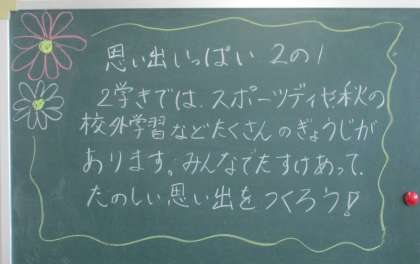 思い出いっぱい 2の1
2学きでは、スポーツディや秋の
校外学習などたくさんのぎょうじが
あります。みんなでたすけあって、
たのしい思い出をつくろう!